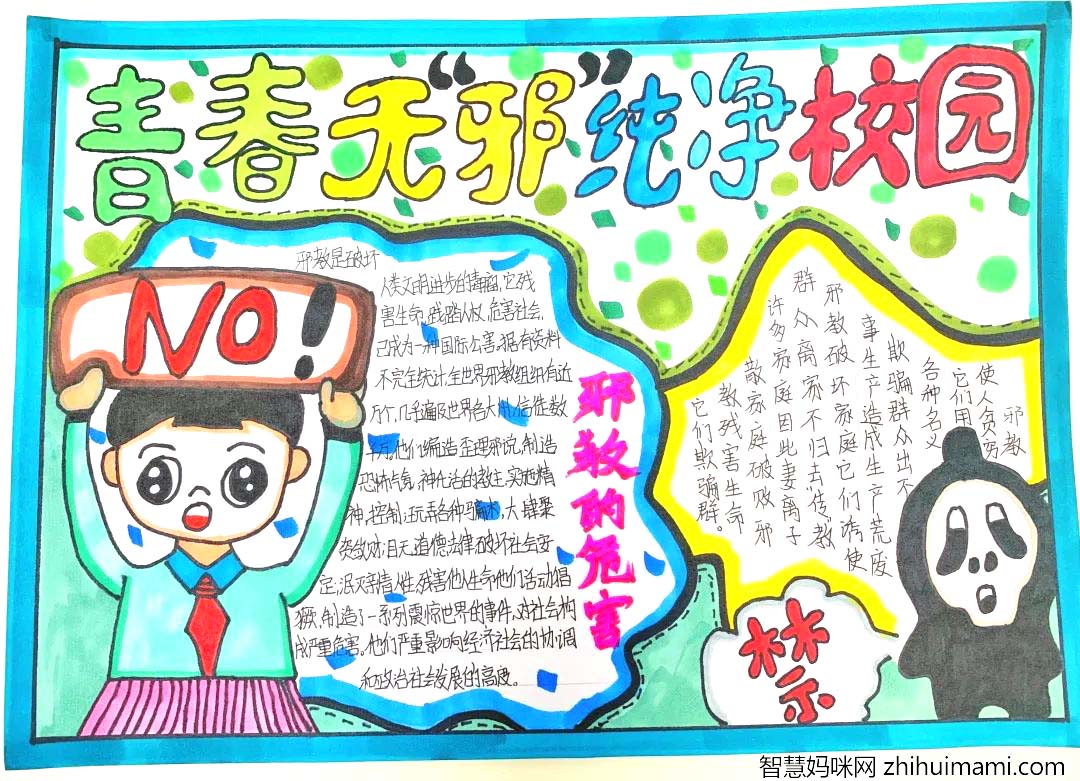 青春无“邪”纯净校园
NO!
邪教是破坏
人类文明进步的毒瘤,它残
害生命,践踏人权,危害社会,
已成为一种国际公害,据有资料
不完全统计,全世界邪教组织有近
万个,几乎遍及世界各大州,信徒数
千万,他们编造歪理邪说,制造
恐怖气氛,神化活的教主,实施精
神,控制,玩弄各种骗术,大肆聚
资敛财,目无道德法律,破坏社会安
定,泯灭亲情人性,残害他人生命他们活动猖
獗,制造了一系列震惊世界的事件,对社会构
成严重危害。他们严重影响经济社会的协调
和政治社会发展的高度。
邪教的危害
邪教
使人贫穷
它们用
各种名义
欺骗群众出不
事生产造成生产荒废
邪教破坏家庭它们诱使
群众离家不归去传教
许多家庭因此妻离子
散家庭破败邪
教残害生命
它们欺骗群。
禁
智慧妈咪网 zhihuimami.com